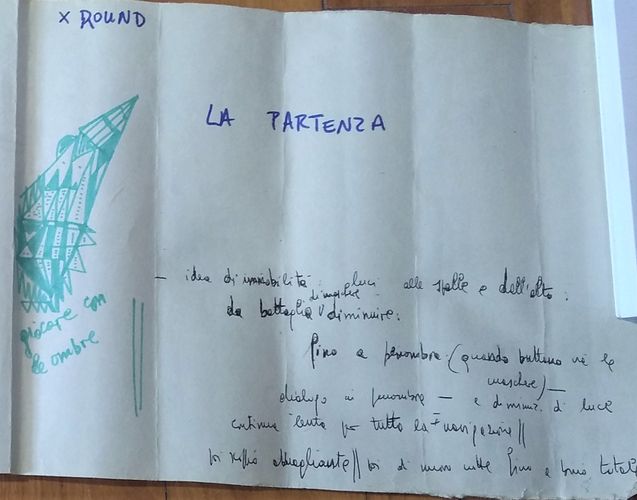 X ROUND
LA PARTENZA
giocare con
le ombre
– idea di immobilità: luci alle spalle e dall'alto:
di maschere
da battaglia diminuire:
fino a penombra (quando buttano via le
maschere) —
dialogo in penombra — e diminuz. di luce
continua lenta per tutta la navigazione //
poi abbagliante // poi di nuovo fino a buio totale